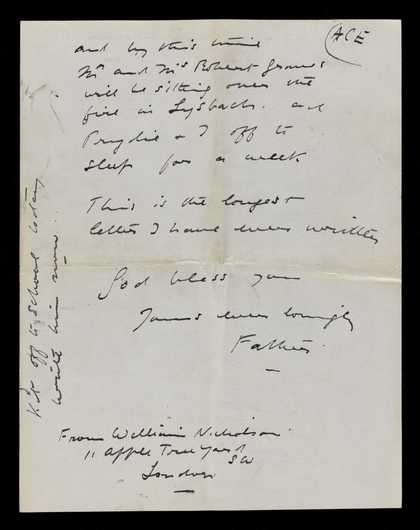 ACE
and by this time
Mr and Mrs Robert Graves
will be sitting over the
fire in Lysbachs. and
Prydie & I off to
sleep for a week
This is the longest
letter I have ever written
God bless you
Yours ever lovingly
Father
From William Nicholson
11 Apple Tree Yard
SW
London
Kit off to school today
write him now